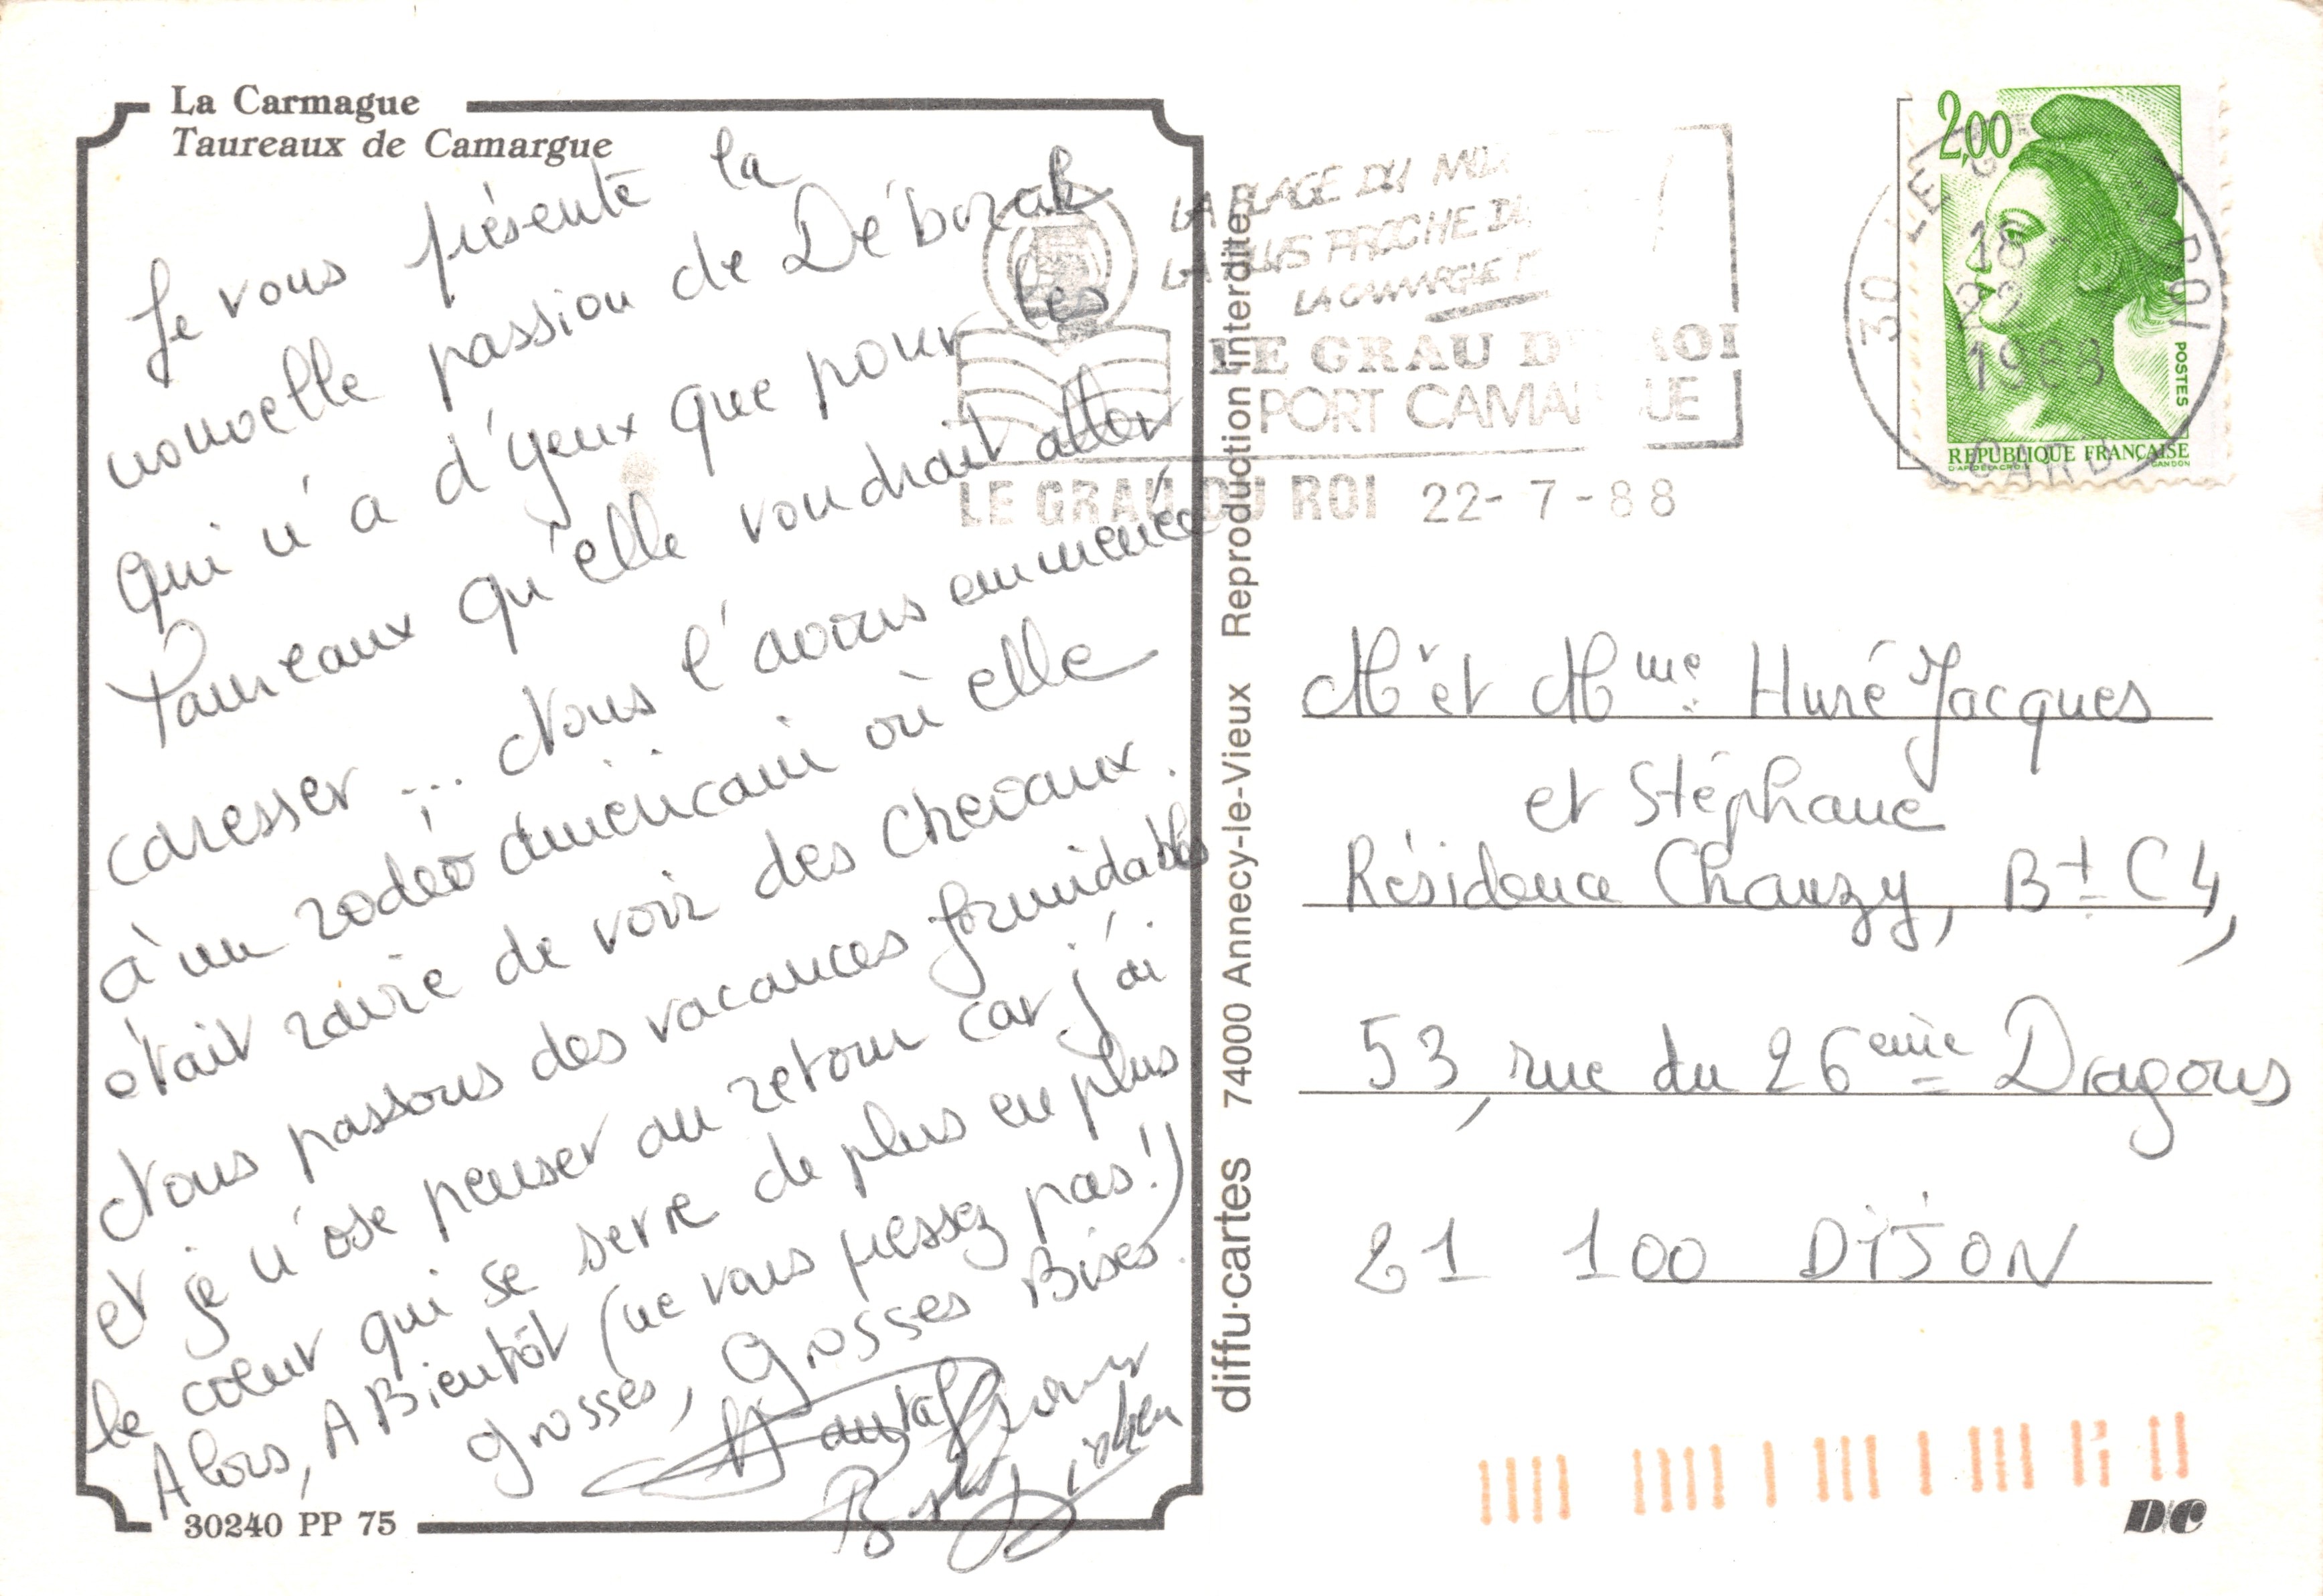 La Carmague
Taureaux de Camargue
Je vous présente la
nouvelle passion de Déborah
qui n'a d'yeux que pour les
Taureaux qu'elle voudrait aller
caresser ... Nous l'avons emmenée
à un rodéo américain où elle
était ravie de voir des chevaux.
Nous passons des vacances formidables
et je n'ose penser au retour car j'ai
le cœur qui se serre de plus en plus
Alors, A Bientôt (ne vous pressez pas!)
grosses, grosses Bises.
30240 PP 75
diffu·cartes 74000 Annecy-le-Vieux Reproduction interdite
LA PLAGE DU
PLUS PROCHE
LA CAMARGUE
LE GRAU DU ROI
PORT CAMARGUE
LE GRAU DU ROI 22-7-88
30 LE GRAU DU ROI
18
22
1988
GARD
2,00
POSTES
REPUBLIQUE FRANÇAISE
D'AP. DELACROIX GANDON
Mr et Mme Huré Jacques
et Stéphane
Résidence Chanzy, Bt C4,
53, rue du 26ème Dragons
21 100 DIJON
DC